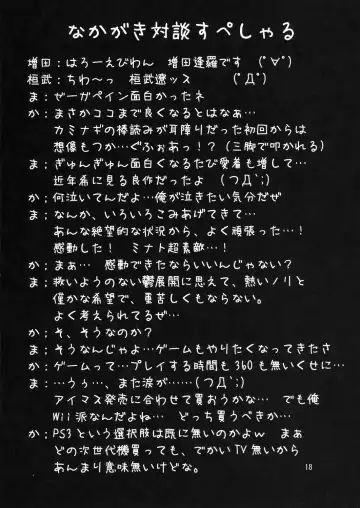 なかがき対談すぺしゃる
増田：はろーえびわん　増田逢羅です　(ﾟ∀ﾟ)
桓武：ちわ～っ　桓武遼ッス　　　(ﾟДﾟ)
ま：ゼーガペイン面白かったネ
か：まさかココまで良くなるとはなぁ…
カミナギの棒読みが耳障りだった初回からは
想像もつか…ぐふぉあっ！？(三脚で叩かれる)
ま：ぎゅんぎゅん面白くなるたび愛着も増して…
近年希に見る良作だったよ　(つД`;)
か：何泣いてんだよ…俺が泣きたい気分だぜ
ま：なんか、いろいろこみあげてきて…
あんな絶望的な状況から、よく頑張った…！
感動した！　ミナト超素敵…！
か：まぁ…　感動できたならいいんじゃない？
ま：救いようのない鬱展開に思えて、熱いノリと
僅かな希望で、重苦しくもならない。
よく考えられてるぜ…
か：そ、そうなのか？
ま：そうなんじゃよ…ゲームもやりたくなってきたさ
か：ゲームって…プレイする時間も360も無いくせに…
ま：…うぅ…、また涙が……(つД`;)
アイマス発売に合わせて買おうかな…　でも俺
Wii派なんだよね…　どっち買うべきか…
か：PS3という選択肢は既に無いのかよw　まぁ
どの次世代機買っても、でかいTV無いから
あんまり意味無いけどな。
18